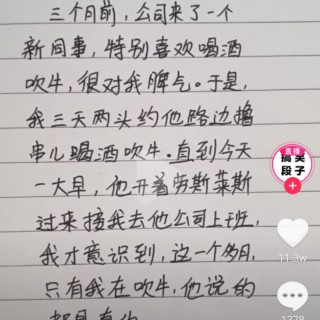 三个月前,公司来了一个
新同事,特别喜欢喝酒
吹牛,很对我脾气。于是,
我三天两头约他路边撸
串儿喝酒吹牛.直到今天
一大早,他开着劳斯莱斯
过来接我去他公司上班,
我才意识到,这一个多月,
只有我在吹牛,他说的
直播
搞笑
段子
11.3w
1378